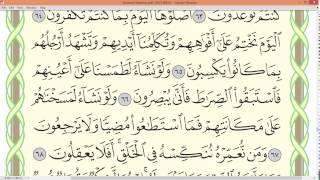 كُنتُمْ تُوعَدُونَ ٦٣ ٱصْلَوْهَا ٱلْيَوْمَ بِمَا كُنتُمْ تَكْفُرُونَ ٦٤
ٱلْيَوْمَ نَخْتِمُ عَلَىٰٓ أَفْوَٰهِهِمْ وَتُكَلِّمُنَآ أَيْدِيهِمْ وَتَشْهَدُ أَرْجُلُهُم
بِمَا كَانُوا۟ يَكْسِبُونَ ٦٥ وَلَوْ نَشَآءُ لَطَمَسْنَا عَلَىٰٓ أَعْيُنِهِمْ
فَٱسْتَبَقُوا۟ ٱلصِّرَٰطَ فَأَنَّىٰ يُبْصِرُونَ ٦٦ وَلَوْ نَشَآءُ لَمَسَخْنَٰهُمْ
عَلَىٰ مَكَانَتِهِمْ فَمَا ٱسْتَطَٰعُوا۟ مُضِيًّا وَلَا يَرْجِعُونَ
٦٧ وَمَن نُّعَمِّرْهُ نُنَكِّسْهُ فِى ٱلْخَلْقِ أَفَلَا يَعْقِلُونَ ٦٨